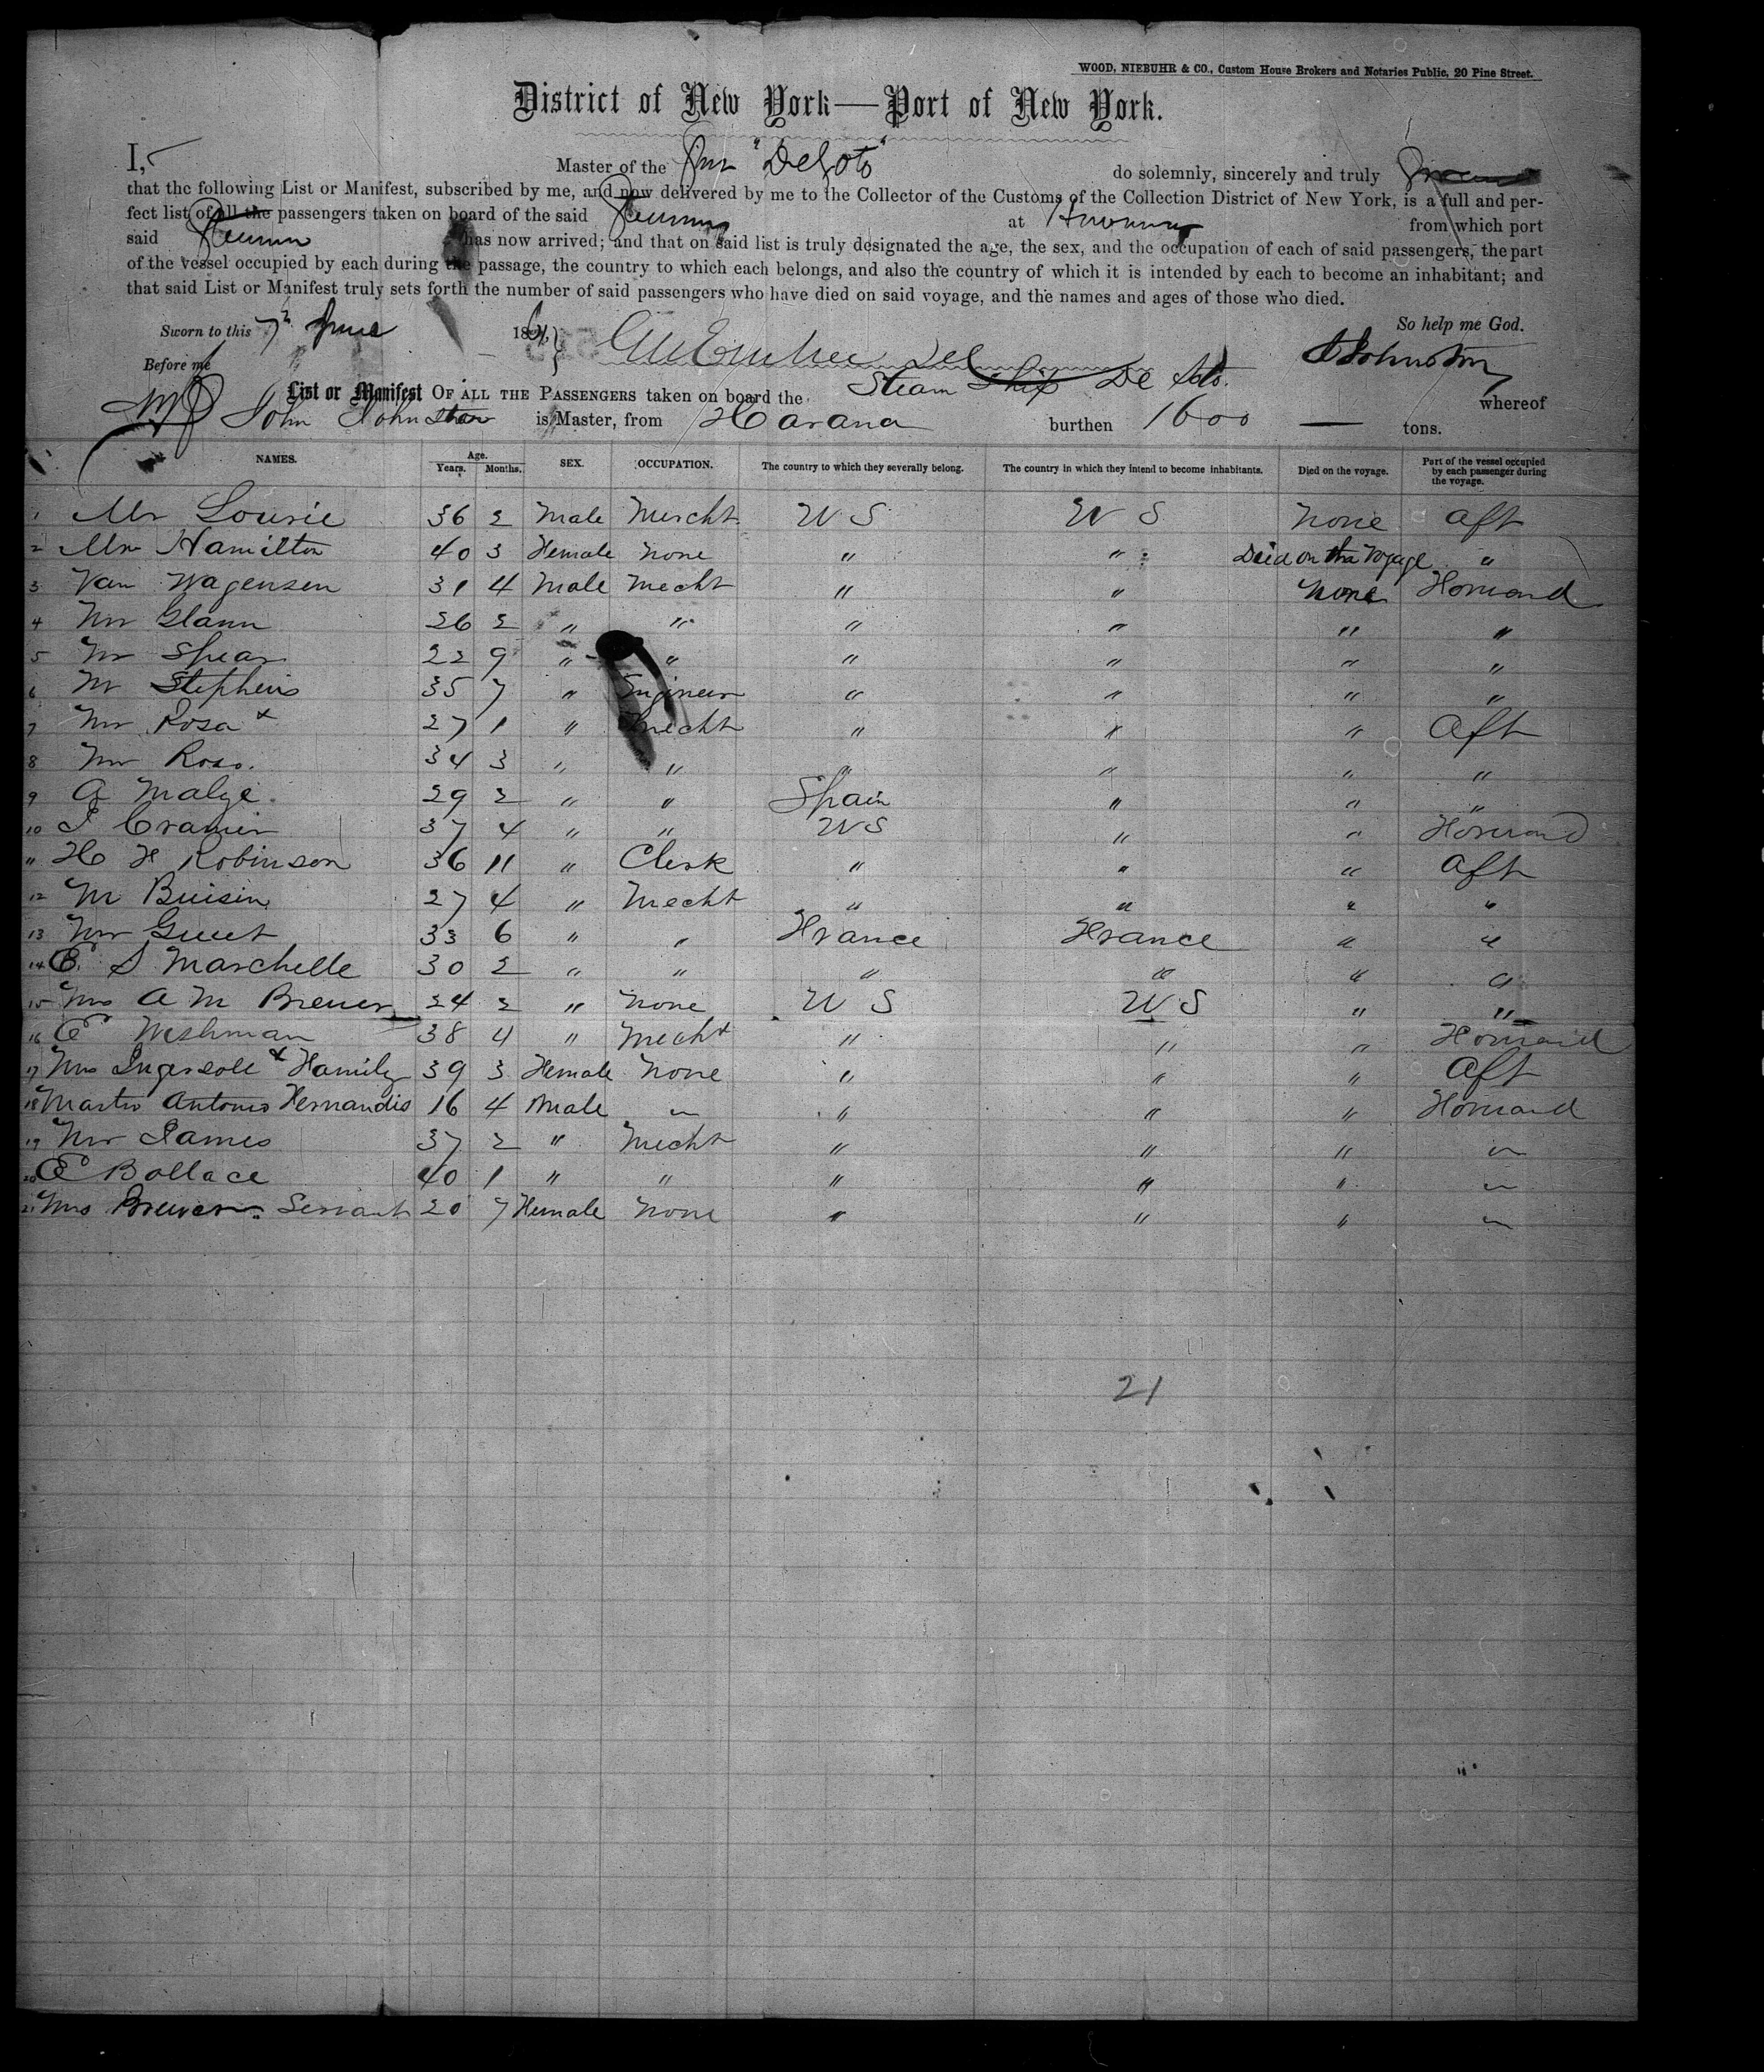 WOOD, NIEBUHR & CO., Custom House Brokers and Notaries Public, 20 Pine Street.
District of New York—Port of New York.
I, Master of the Str "De Soto" do solemnly, sincerely and truly Swear
that the following List or Manifest, subscribed by me, and now delivered by me to the Collector of the Customs of the Collection District of New York, is a full and per-
fect list of all the passengers taken on board of the said Steamer at Havana from which port
said Steamer has now arrived; and that on said list is truly designated the age, the sex, and the occupation of each of said passengers, the part
of the vessel occupied by each during the passage, the country to which each belongs, and also the country of which it is intended by each to become an inhabitant; and
that said List or Manifest truly sets forth the number of said passengers who have died on said voyage, and the names and ages of those who died.
Sworn to this 7" June 186 So help me God.
Before me J Johnston
List or Manifest OF ALL THE PASSENGERS taken on board the Steam Ship De Soto. whereof
John Johnston is Master, from Havana burthen 1600 — tons.
NAMES. Age. Years. Months. SEX. OCCUPATION. The country to which they severally belong. The country in which they intend to become inhabitants. Died on the voyage. Part of the vessel occupied by each passenger during the voyage.
1 Mr Lourie 36 2 Male Mercht. U S U S None Aft
2 Mrs Hamilton 40 3 Female None " " Died on the Voyage "
3 Van Wagensen 31 4 Male Mecht " " None Forward
4 Mr Glann 26 2 " " " " " "
5 Mr Spear 22 9 " " " " " "
6 Mr Stephens 35 7 " Engineer " " " "
7 Mr Rosa 27 1 " Mecht " " " Aft
8 Mr Roso. 34 3 " " " " " "
9 A Malge. 29 2 " " Spain " " "
10 J Cramer 37 4 " " U S " " Forward
11 H F Robinson 36 11 " Clerk " " " Aft
12 M Buisin 27 4 " Mecht " " " "
13 Mr Guut 33 6 " " France France " "
14 E. S Marchelle 30 2 " " " " " "
15 Mrs A M Brewer 24 2 " None U S U S " "
16 E Weshman 38 4 " Mecht " " " Forward
17 Mrs Ingersoll & Family 39 3 Female None " " " Aft
18 Master Antonio Hernandis 16 4 Male " " " " Forward
19 Mr James 37 2 " Mecht " " " "
20 E Ballace 40 1 " " " " " "
21 Mrs Brewers Servant 20 7 Female None " " " "
21